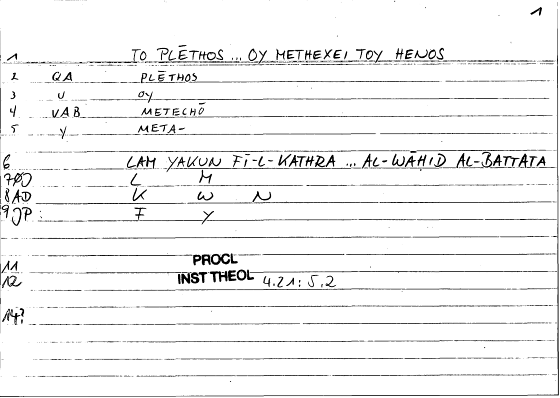 1
1 TO PLĒTHOS ... OY METHEXEI TOY HENOS
2 QA PLĒTHOS
3 U OY
4 VAB METECHŌ
5 Y META-
6 LAM YAKUN FĪ-L-KATHRA ... AL-WĀḤID AL-BATTATA
7 ØJ L M
8 AD K W N
9 JP F Y
11 PROCL
12 INST THEOL 4.21: 5.2
14?